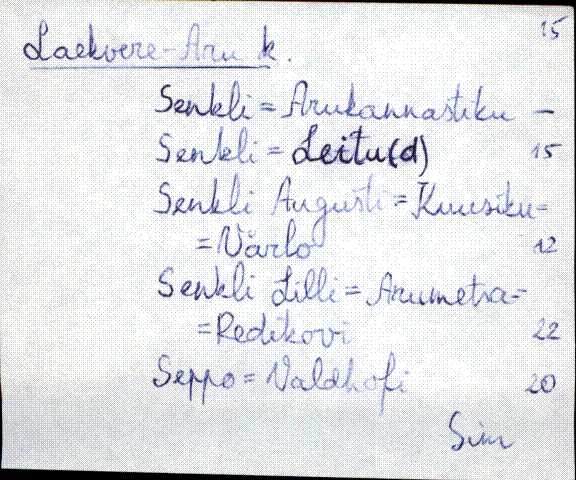 15
Laekvere-Aru k.
Senkli = Arukannastiku —
Senkli = Leitu(d) 15
Senkli Augusti = Kuusiku=
= Värlo 12
Senkli Lilli = Arumetsa=
= Redikovi 22
Seppo = Valdhofi 20
Sim